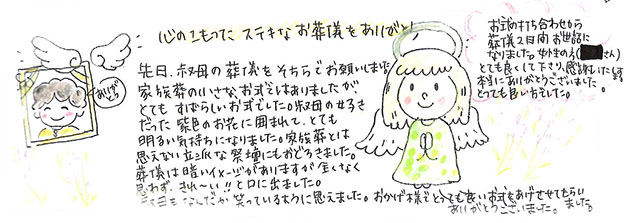 心のこもった ステキなお葬儀をありがとう
ありがとう
先日、叔母の葬儀をそちらでお願いしました。
家族葬の小さなお式ではありましたが
とてもすばらしいお式でした。叔母の好き
だった紫色のお花に囲まれて、とても
明るい気持ちになりました。家族葬とは
思えない立派な祭壇にもおどろきました。
葬儀は暗いイメージがありますが全くなく
思わず、きれ〜い!!と口に出ました。
なんだか笑っているように思えました。おかげ様でとっても良いお式をあげさせてもらい
ありがとうございました。
お打ち合わせから
葬儀2日間お世話に
なりました。女性の方(さん)
とても良くして下さり、感謝いたします
本当にありがとうございました。
とっても良い方でした。